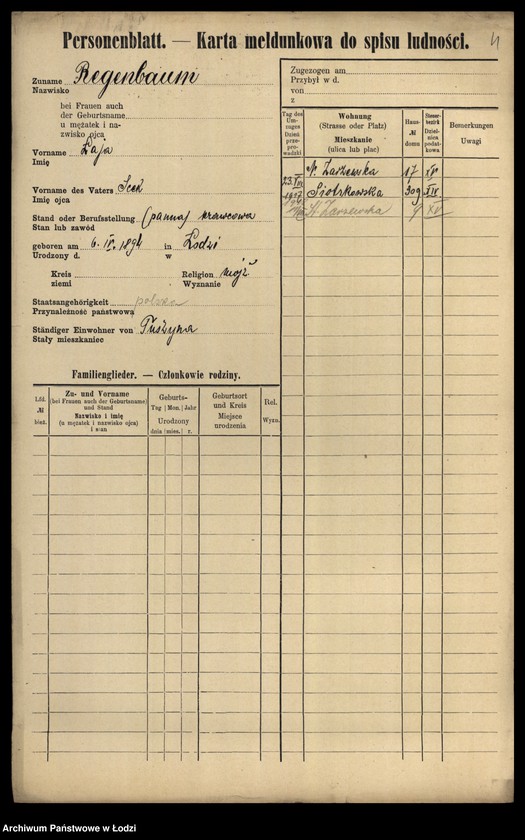 Personenblatt. — Karta meldunkowa do spisu ludności.
Zuname Regenbaum
Nazwisko
bei Frauen auch
der Geburtsname
u mężatek i na-
zwisko ojca
Vorname Łaja
Imię
Vorname des Vaters Icek
Imię ojca
Stand oder Berufsstellung (panna) krawcowa
Stan lub zawód
geboren am 6. IV. 1894 in Łodzi
Urodzony d. w
Kreis Religion mojż.
ziemi Wyznanie
Staatsangehörigkeit polska
Przynależność państwowa
Ständiger Einwohner von Tuszyna
Stały mieszkaniec
Familienglieder. — Członkowie rodziny.
Lfd. № bież.
Zu- und Vorname
(bei Frauen auch der Geburtsname)
und Stand
Nazwisko i imię
(u mężatek i nazwisko ojca)
i stan
Geburts-
Tag | Mon. | Jahr
Urodzony
dnia | mies. | r.
Geburtsort
und Kreis
Miejsce
urodzenia
Rel.
Wyzn.
Zugezogen am
Przybył w d.
von
z
Tag des
Um-
zuges
Dzień
przepro-
wadzki
Wohnung
(Strasse oder Platz)
Mieszkanie
(ulica lub plac)
Haus-
№
domu
Steuer-
bezirk
Dziel-
nica
podat-
kowa
Bemerkungen
Uwagi
N. Zarzewska 17 XV
Piotrkowska 309 XIV
N. Zarzewska 9 XV
Archiwum Państwowe w Łodzi